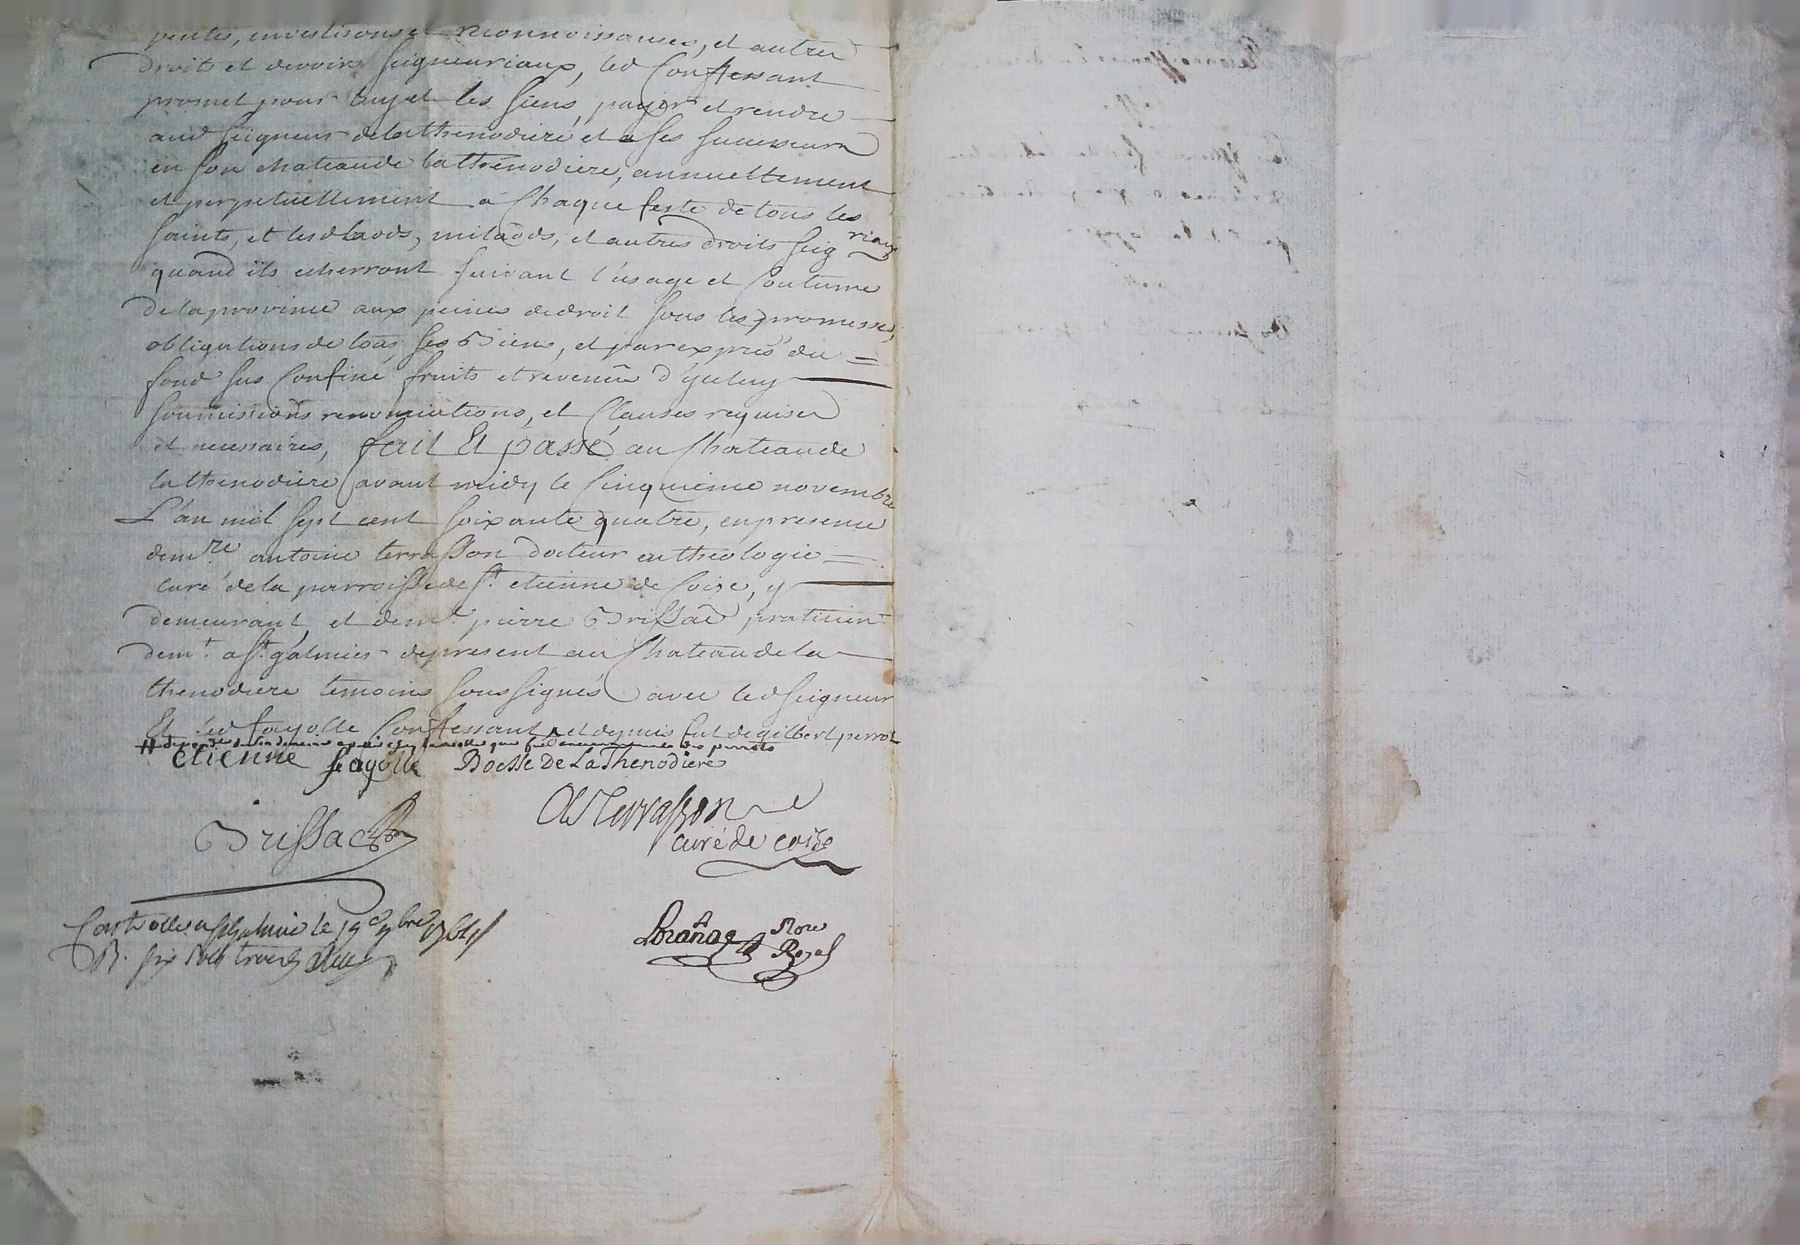 ventes, investisons et reconnoissances, et autres
droits et devoirs seigneuriaux, led Confessant
promet pour luy et les siens, payer et rendre
aud seigneur de la thenodiere et a ses successeurs
en son chateau de la thenodiere, annuellement
et perpetuellement a Chaque feste de tous les
saints, et lesd Laods, milaods, et autres droits seigriaux
quand ils echerront suivant l'usage et Coutume
de la province aux peines de droit sous les promesses,
obligations de tous ses Biens, et par exprés du =
fond sus Confiné fruits et revenûs d'yceluy
soumissions renonciations, et Clauses requises
et necessaires, fait Et passé au Chateau de
la thenodiere avant midy le Cinquieme novembre
L'an mil sept cent soixante quatre, en presence
de mre antoine terrasson docteur en theologie =
curé de la parroisse de st. etienne de Coise, y
demeurant, et de mr. pierre Brissac praticien
demt. a st. galmier de present au Chateau de la
thenodiere temoins soussignés avec led seigneur
Et led fayolle Confessant et depuis fut de gilbert perrot
etienne fayolle Boesse De La Thenodiere
Brissac
Terrasson
curé de coise
Nore
Royal
Controllé a st galmier le 19e 9bre 1764
R. six sols trois